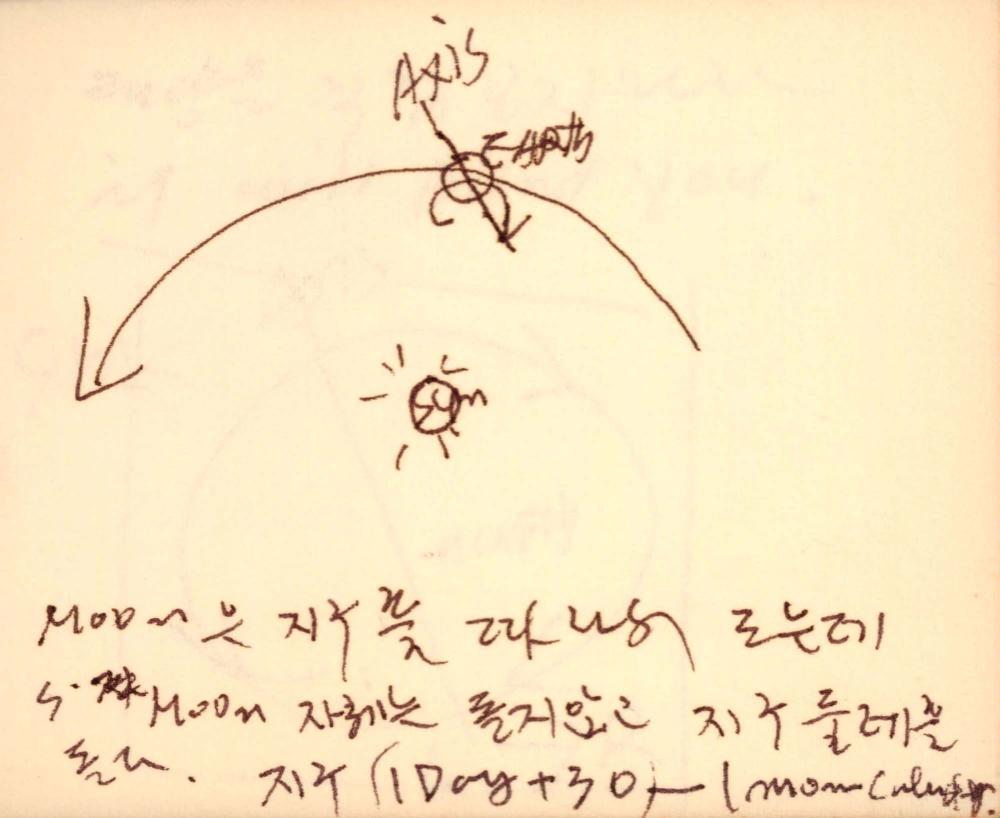 Axis
Earth
Sun
Moon은 지구를 따라서 도는데
Moon 자체는 돌지않고 지구 둘레를
돈다. 지구 (1 Day + 30) — 1 moon